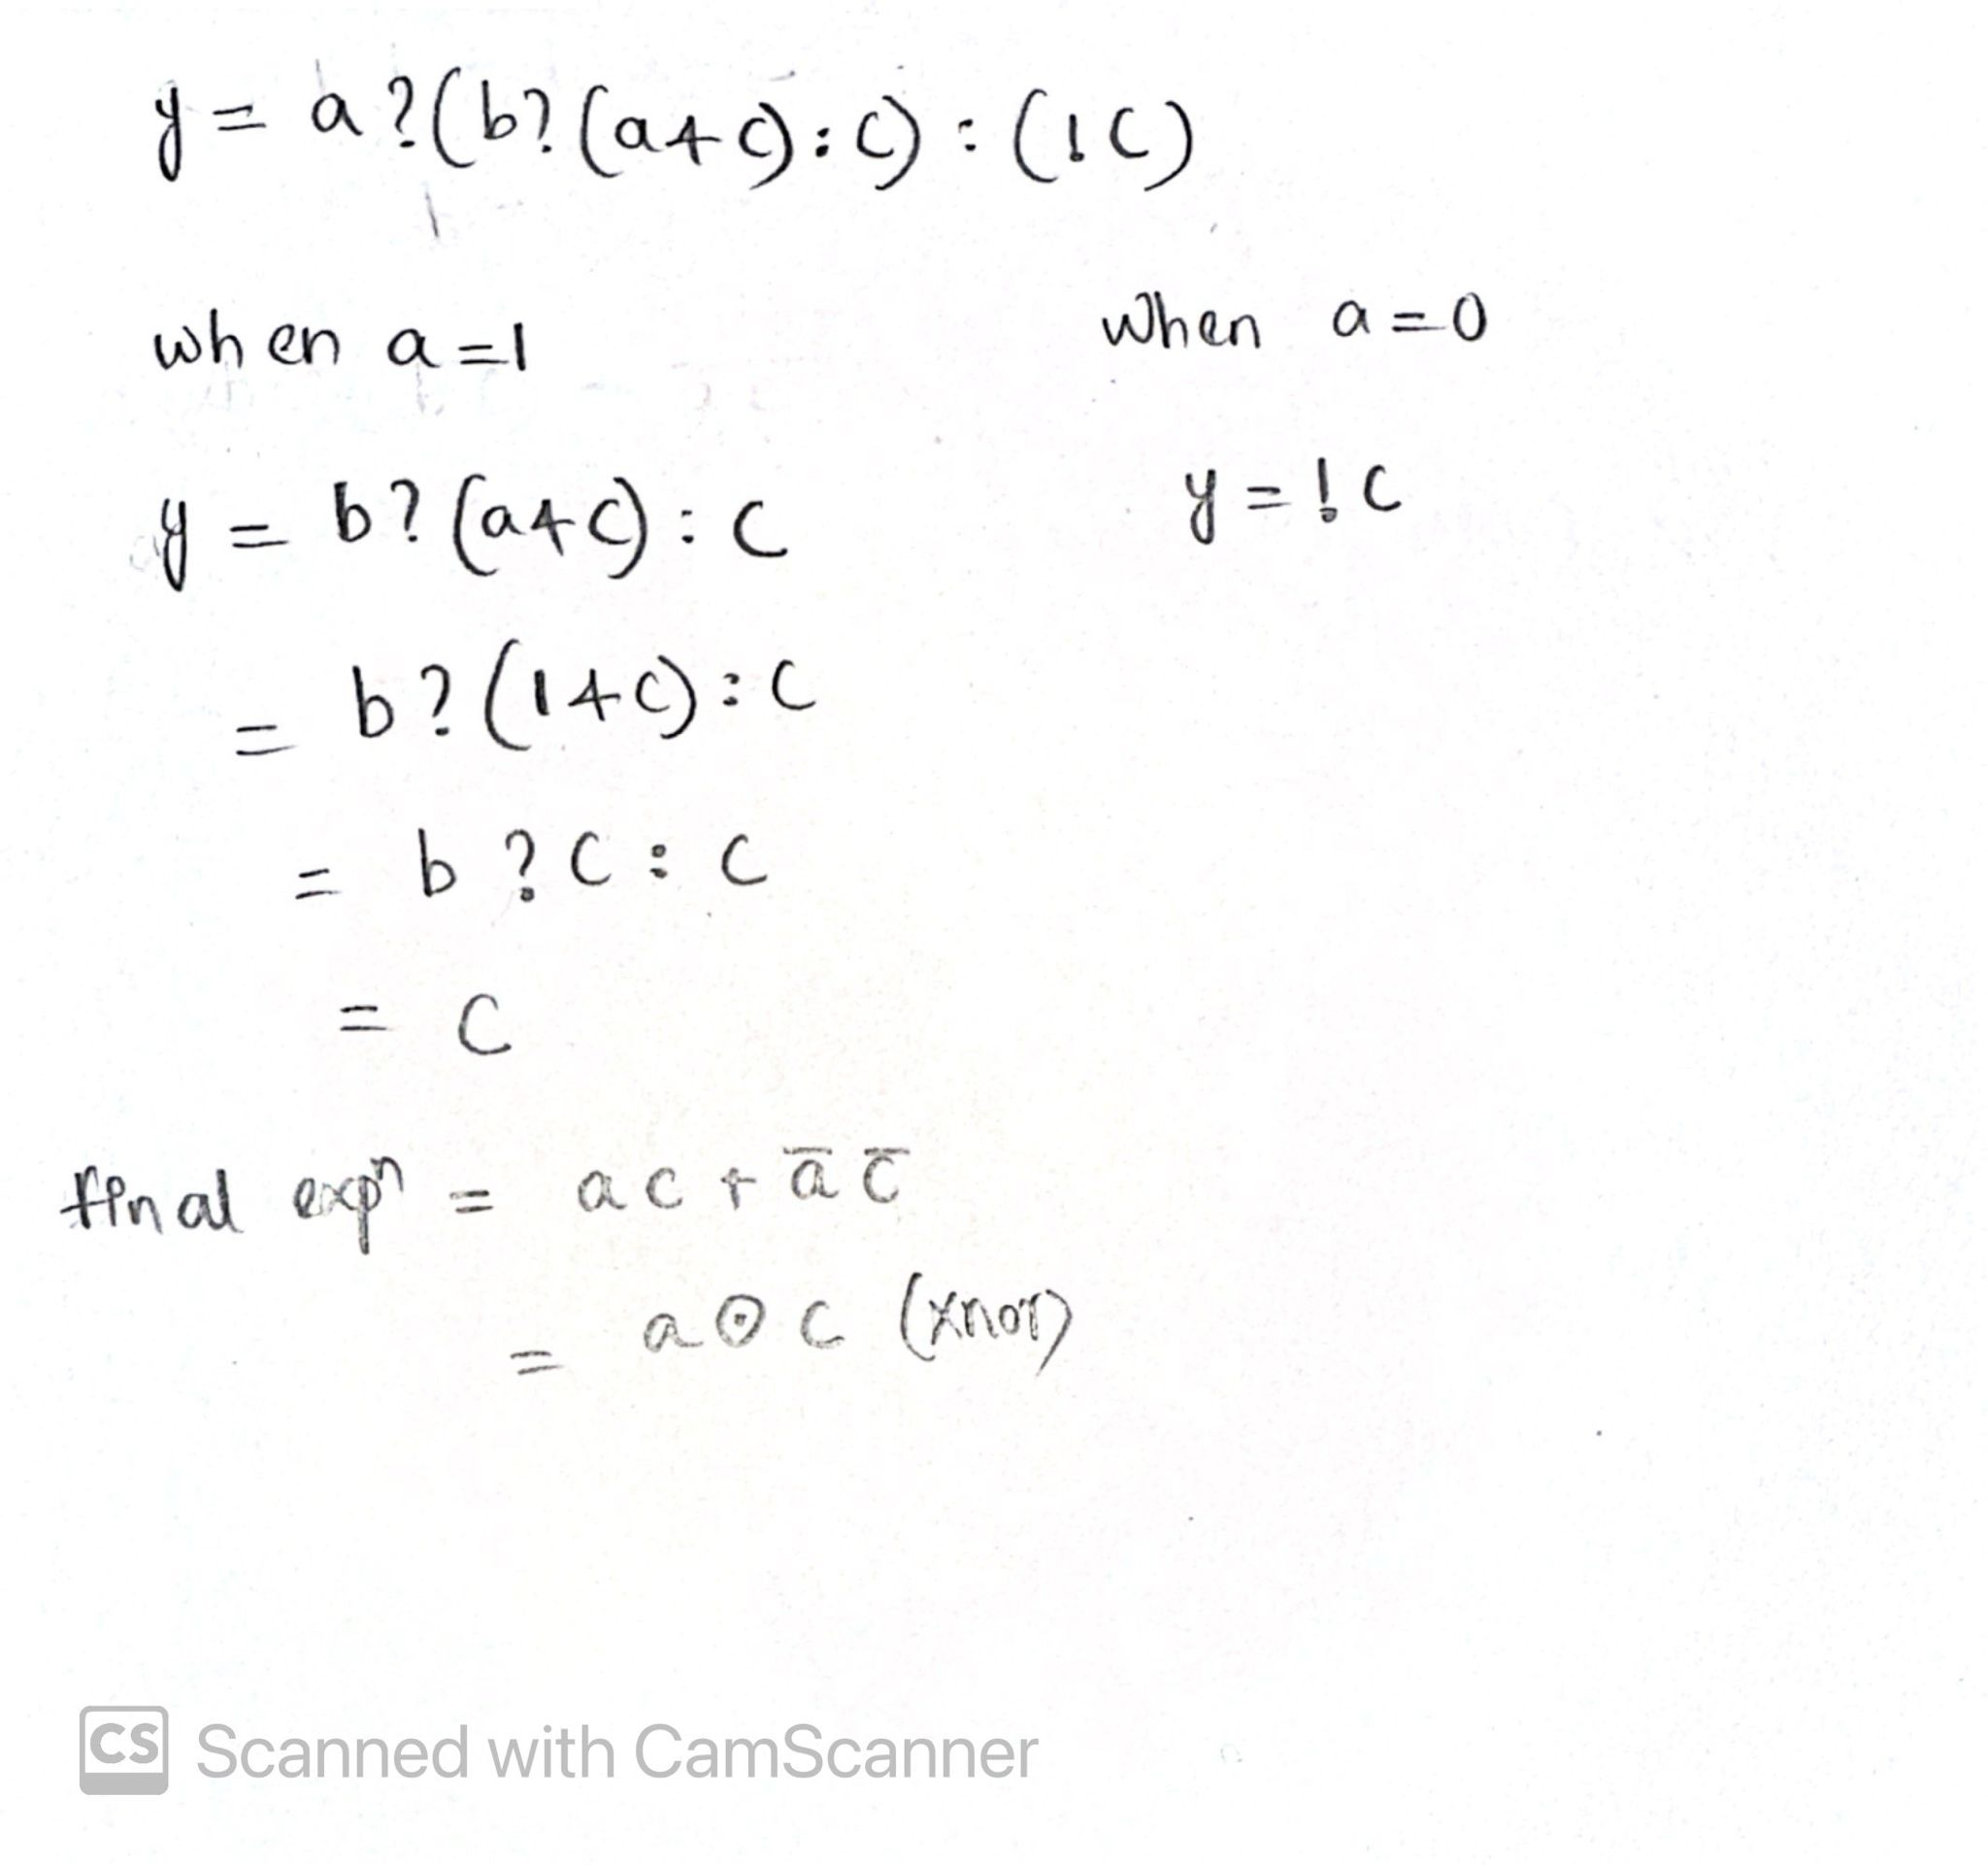 y = a?(b?(a+c):c):(!c)
when a=1
y = b?(a+c):c
= b?(1+c):c
= b?c:c
= c
When a=0
y=!c
final expⁿ = ac + a̅ c̅
= a⊙c (xnor)
CS Scanned with CamScanner